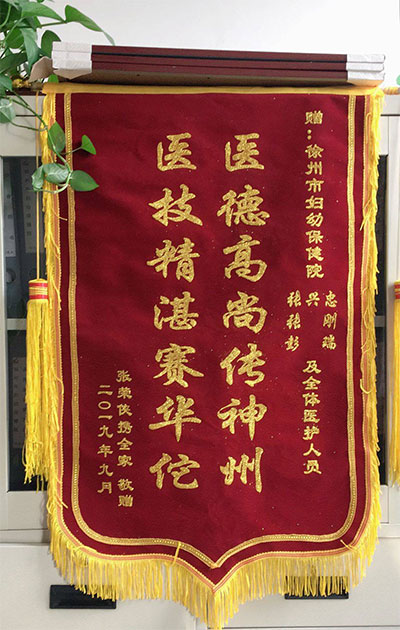 赠：徐州市妇幼保健院
张兴忠
张刚
彭瑞
及全体医护人员
医德高尚传神州
医技精湛赛华佗
张荣侠携全家 敬赠
二〇一九年九月